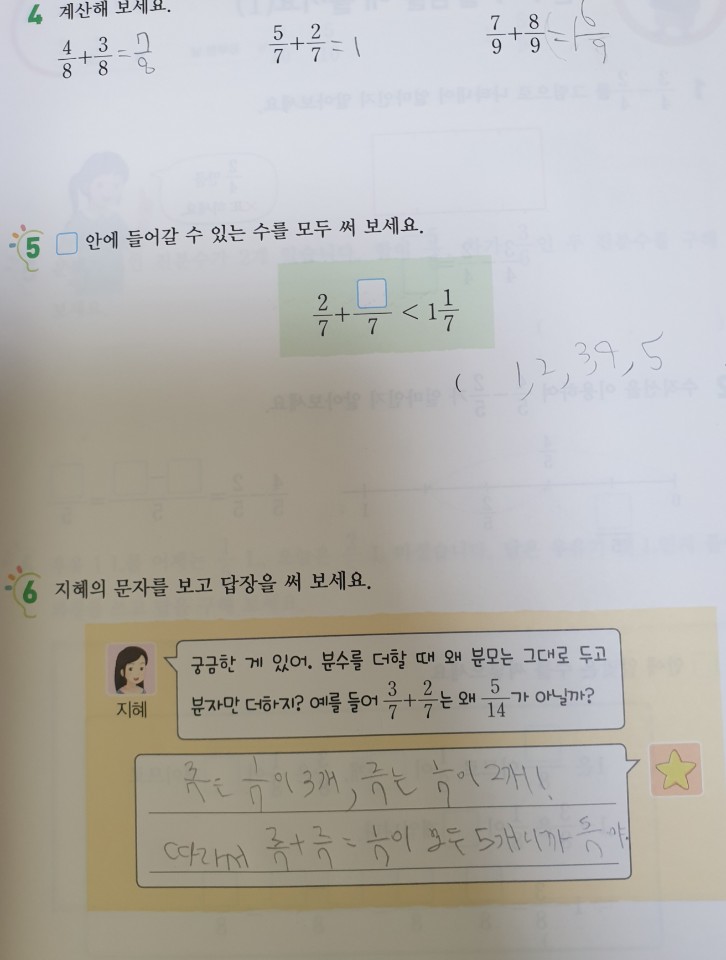 4 계산해 보세요.
4/8 + 3/8 = 7/8 5/7 + 2/7 = 1 7/9 + 8/9 = 1 6/9
5 □ 안에 들어갈 수 있는 수를 모두 써 보세요.
2/7 + □/7 < 1 1/7
( 1, 2, 3, 4, 5
6 지혜의 문자를 보고 답장을 써 보세요.
궁금한 게 있어. 분수를 더할 때 왜 분모는 그대로 두고
분자만 더하지? 예를 들어 3/7 + 2/7는 왜 5/14가 아닐까?
지혜
3/7은 1/7이 3개, 2/7는 1/7이 2개!
따라서 3/7 + 2/7 = 1/7이 모두 5개니까 5/7야.